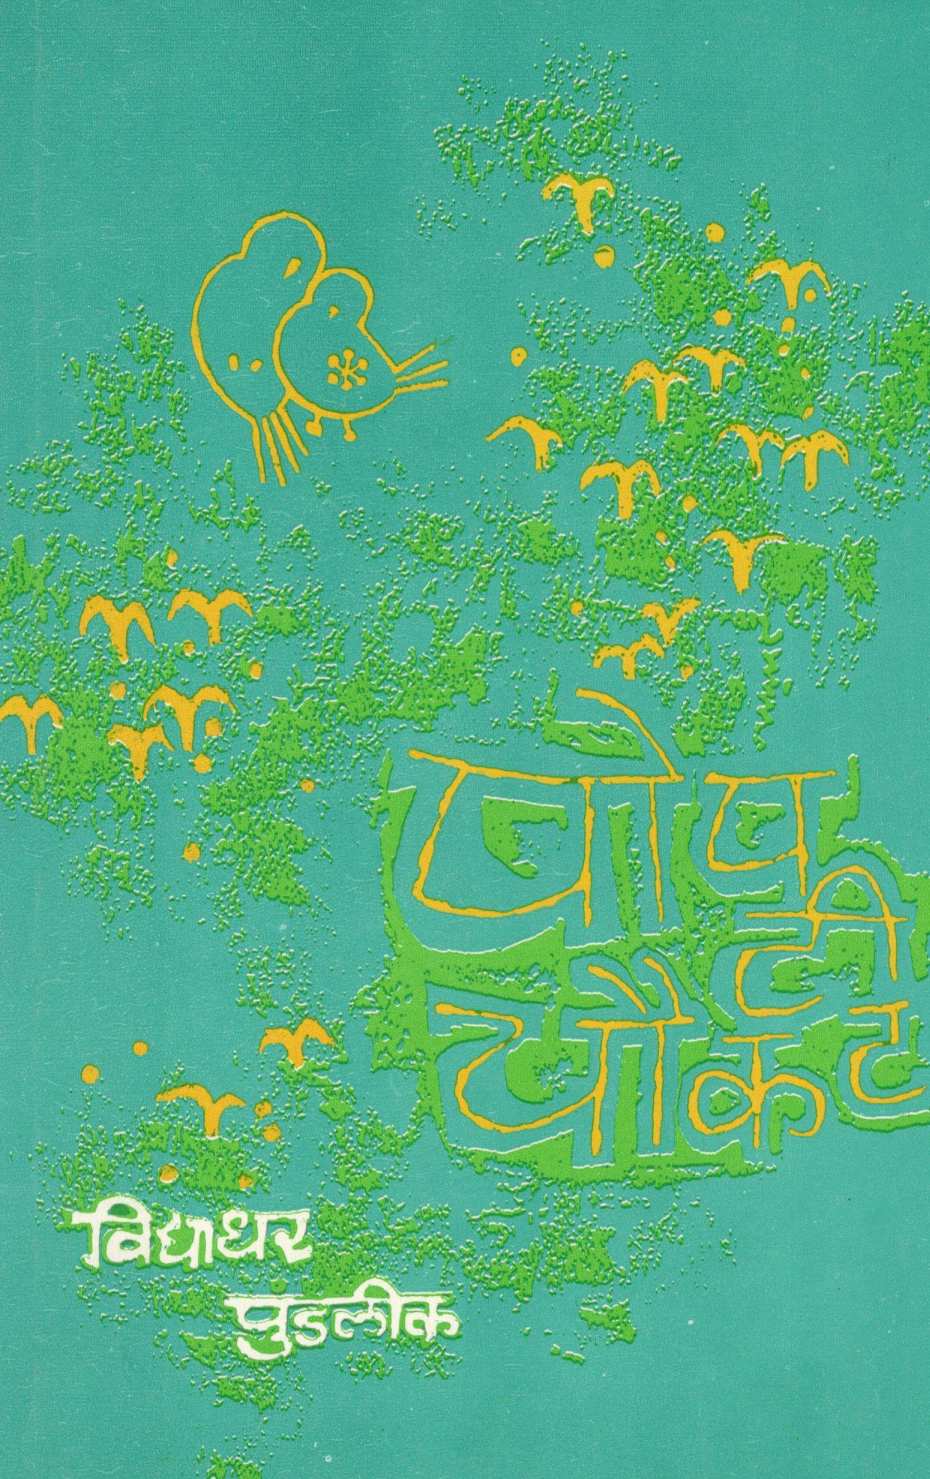 पोपटी
चौकट
विद्याधर
पुंडलीक